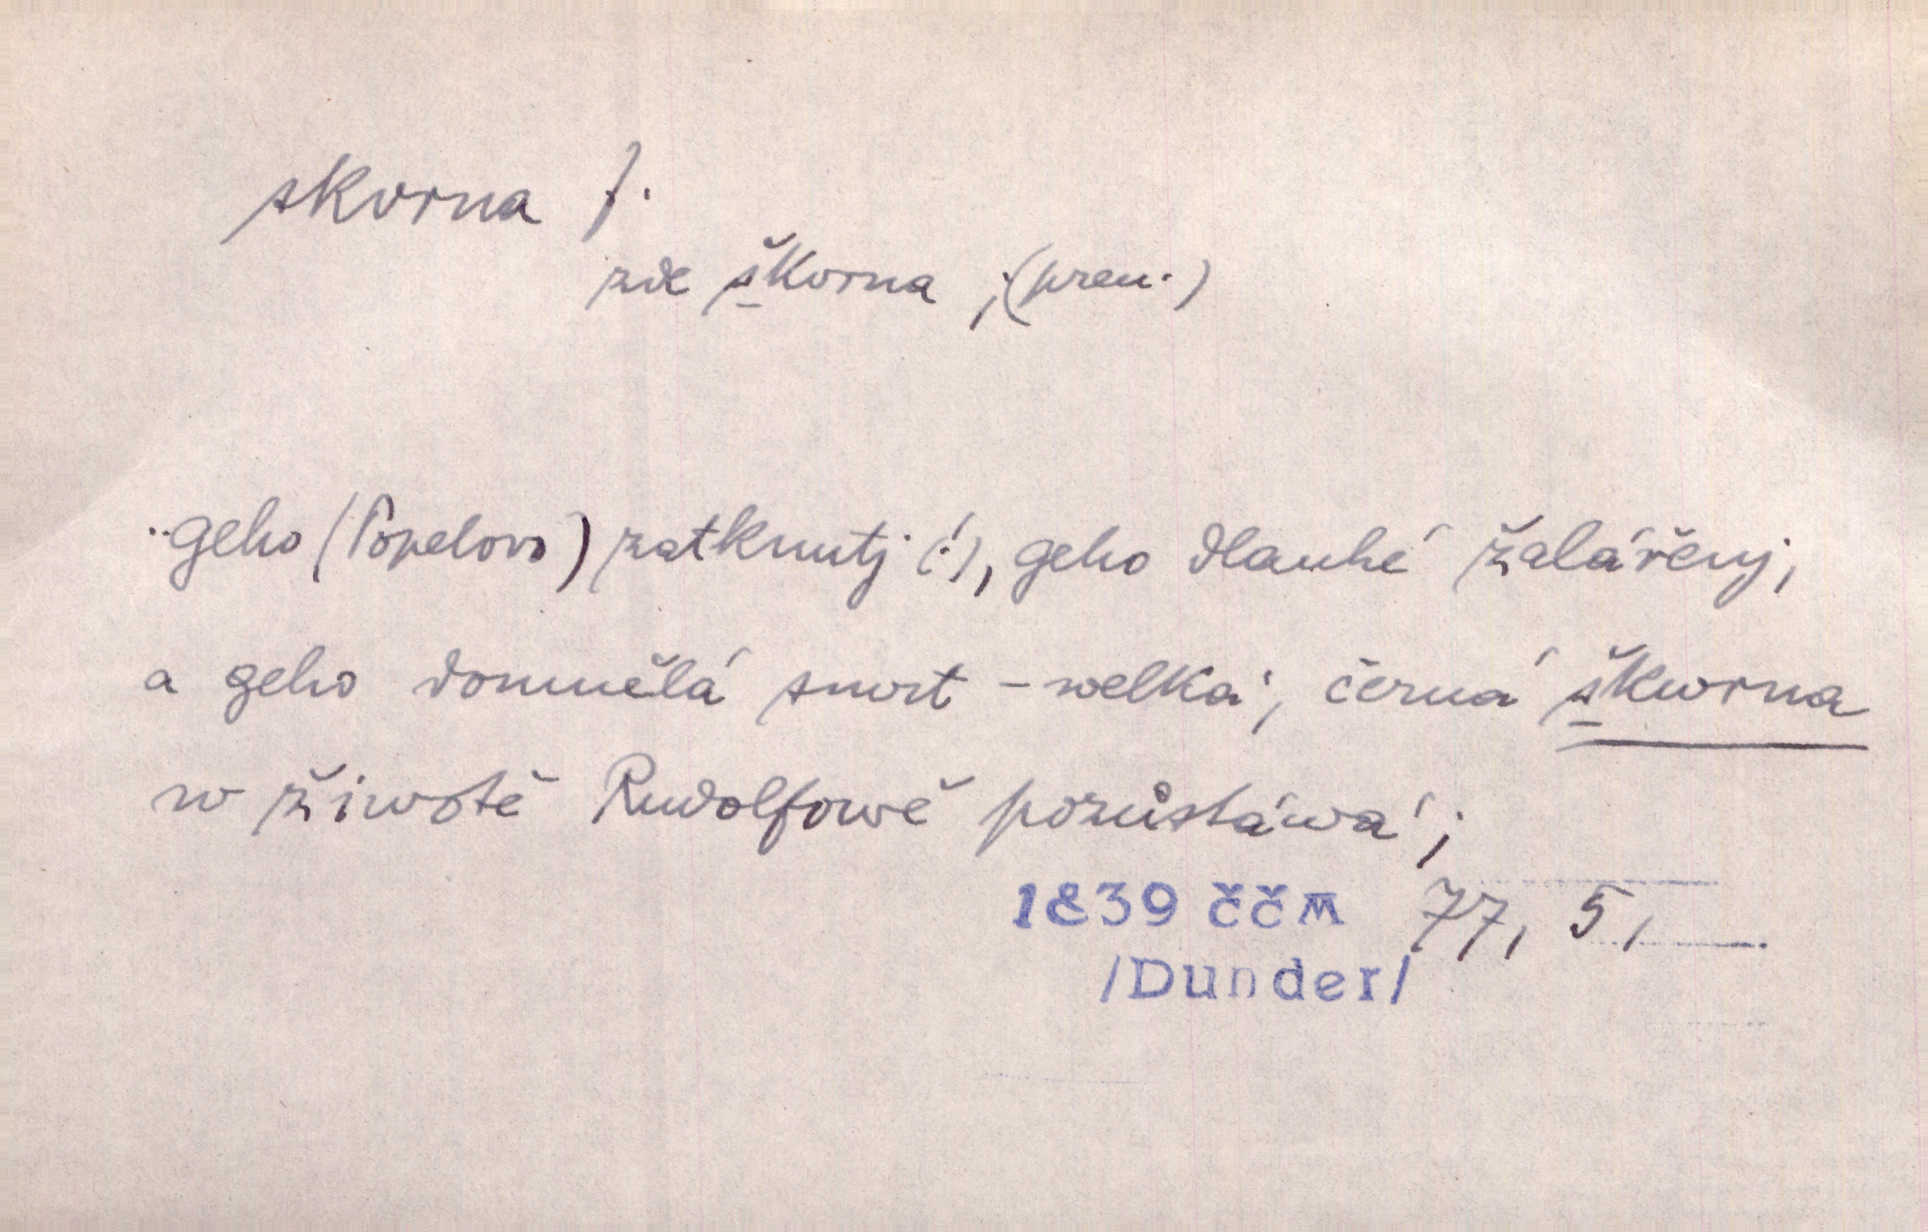 skvrna f.
zde škvrna ; (přen.)
..geho (Popelovo) zatknutj (!), geho dlauhé žalářěnj,
a geho domnělá smrt – welká, černá škwrna
w žiwotě Rudolfowě pozůstáwá;
1839 ččm 77, 5,
/Dunder/